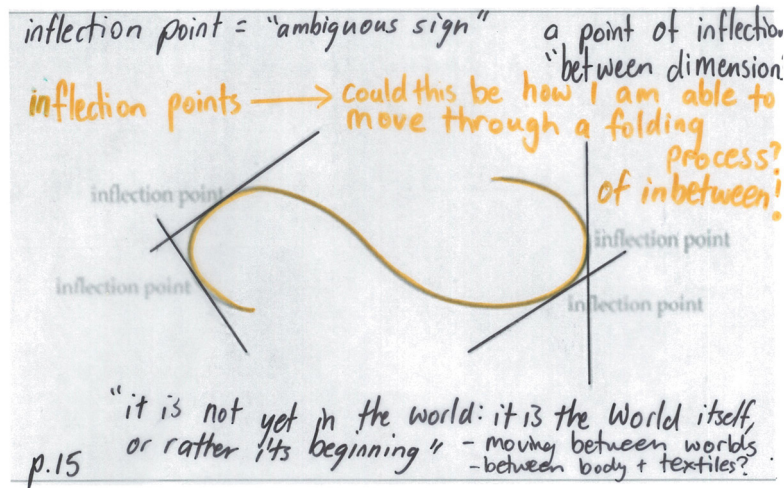 inflection point = "ambiguous sign"
a point of inflection
"between dimension"
inflection points → could this be how I am able to
move through a folding
process?
of inbetween!
inflection point
inflection point
inflection point
inflection point
"it is not yet in the world: it is the World itself,
or rather it's beginning" - moving between worlds
- between body + textiles?
p.15